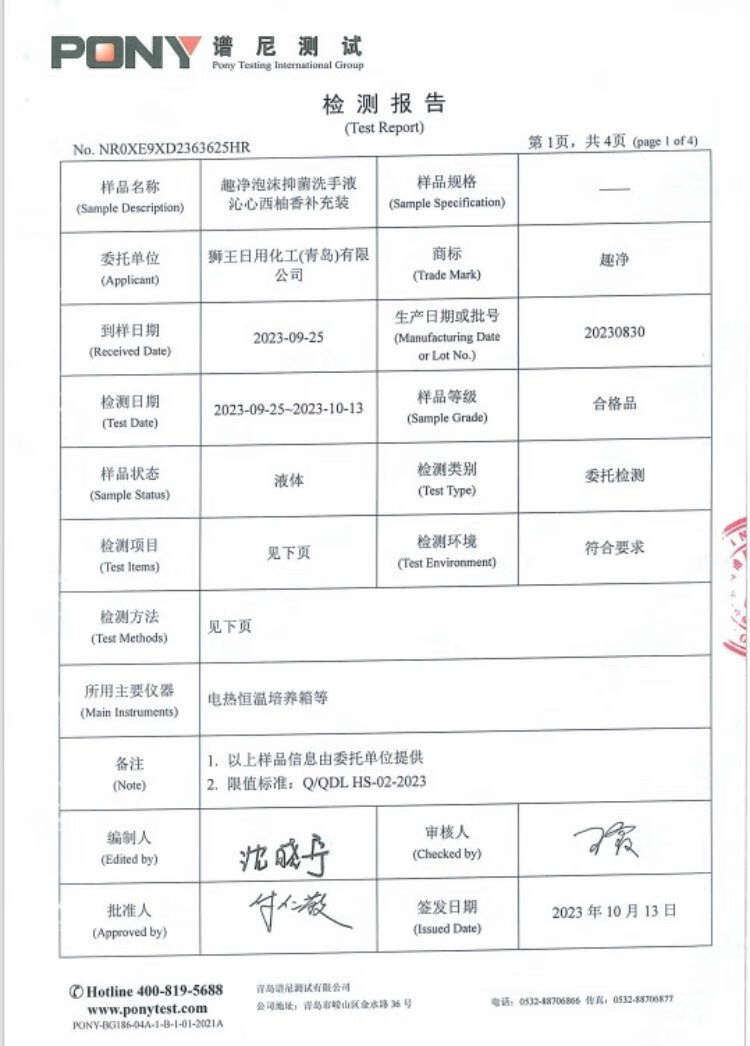 PONY 谱尼测试
Pony Testing International Group
检测报告
(Test Report)
No. NR0XE9XD2363625HR
第1页，共4页 (page 1 of 4)
样品名称
(Sample Description)
趣净泡沫抑菌洗手液
沁心西柚香补充装
样品规格
(Sample Specification)
——
委托单位
(Applicant)
狮王日用化工(青岛)有限
公司
商标
(Trade Mark)
趣净
到样日期
(Received Date)
2023-09-25
生产日期或批号
(Manufacturing Date
or Lot No.)
20230830
检测日期
(Test Date)
2023-09-25~2023-10-13
样品等级
(Sample Grade)
合格品
样品状态
(Sample Status)
液体
检测类别
(Test Type)
委托检测
检测项目
(Test Items)
见下页
检测环境
(Test Environment)
符合要求
检测方法
(Test Methods)
见下页
所用主要仪器
(Main Instruments)
电热恒温培养箱等
备注
(Note)
1. 以上样品信息由委托单位提供
2. 限值标准：Q/QDL HS-02-2023
编制人
(Edited by)
审核人
(Checked by)
批准人
(Approved by)
付仁敬
签发日期
(Issued Date)
2023 年 10 月 13 日
✆ Hotline 400-819-5688
www.ponytest.com
PONY-BG186-04A-1-B-1-01-2021A
青岛谱尼测试有限公司
公司地址：青岛市崂山区金水路 36 号
电话：0532-88706866 传真：0532-88706877